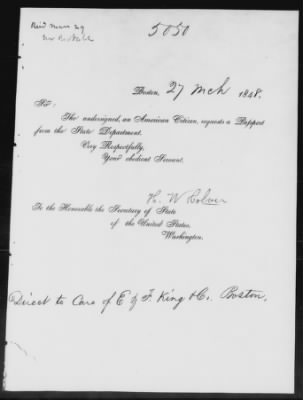 5050
Boston, 27 Mch 1848.
Sir:
The undersigned, an American Citizen, requests a Passport
from the State Department.
Very Respectfully,
Your obedient Servant.
H. W.
To the Honorable the Secretary of State
of the United States,
Washington.
Direct to Care of E & F. King & Co. Boston.